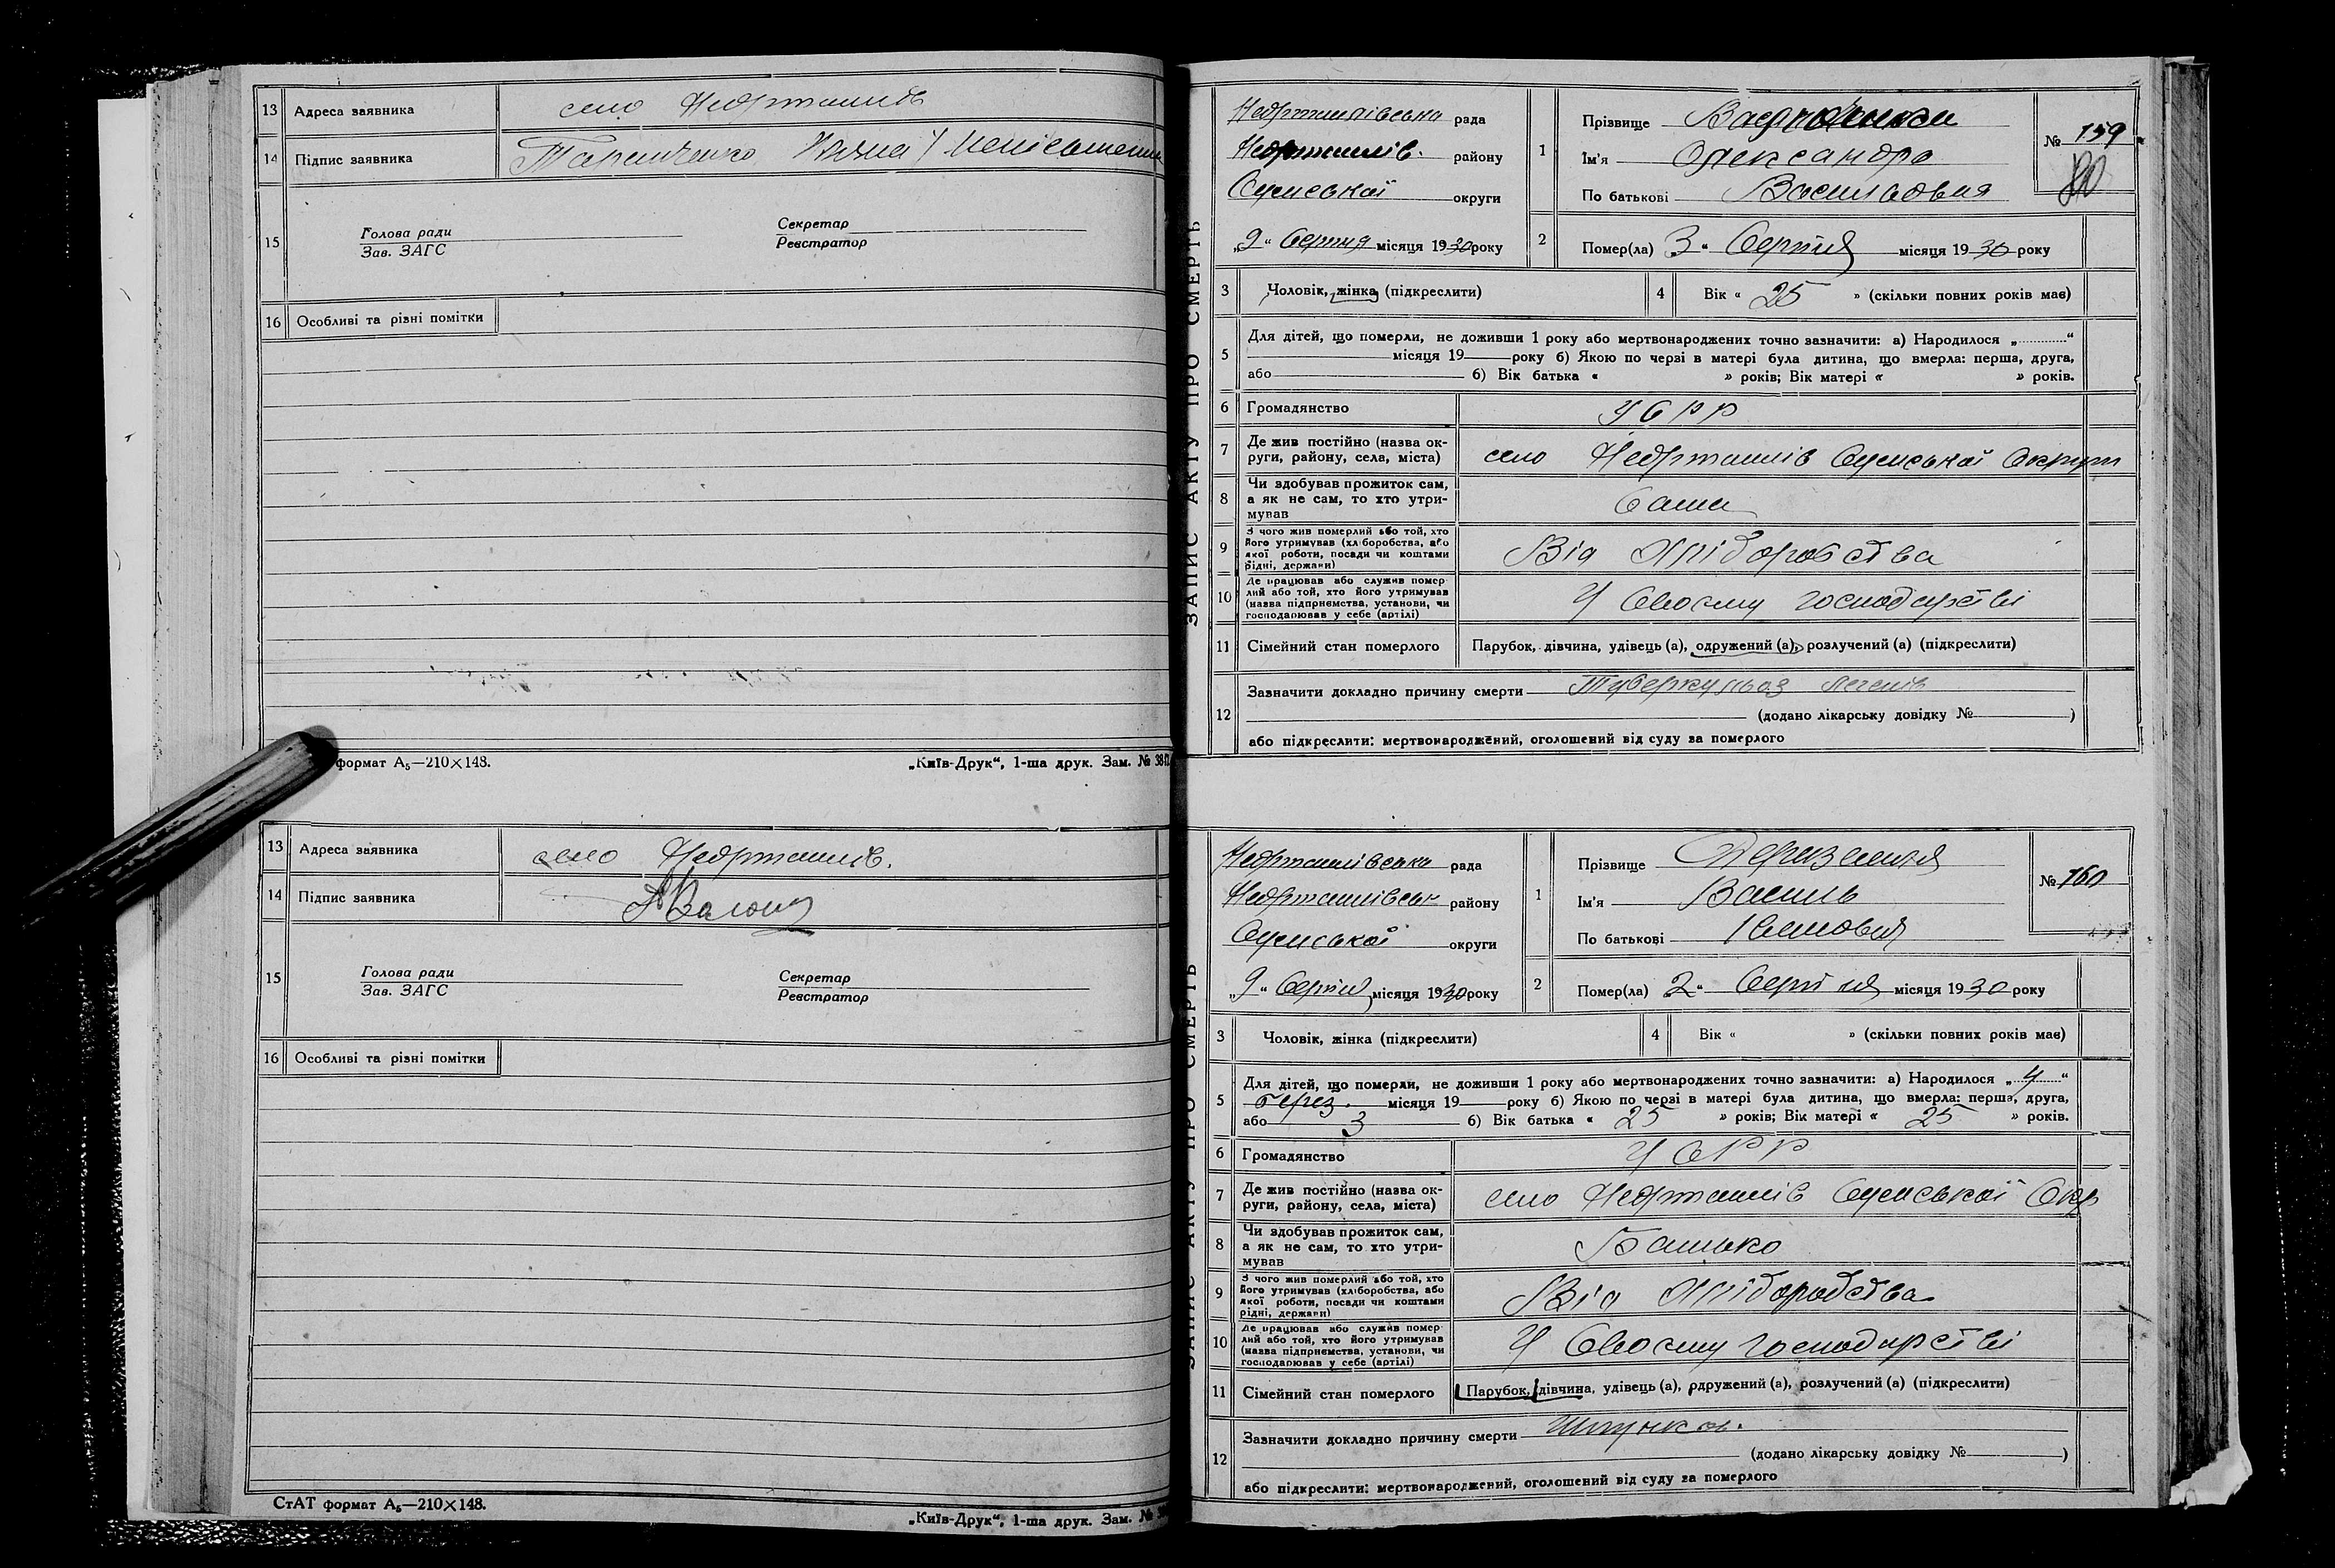 13 Адреса заявника село Недригайлів
14 Підпис заявника
15 Голова ради Секретар
Зав. ЗАГС Реєстратор
16 Особливі та різні помітки
формат А₅—210×148. „Київ-Друк“, 1-ша друк. Зам. №
13 Адреса заявника село Недригайлів.
14 Підпис заявника
15 Голова ради Секретар
Зав. ЗАГС Реєстратор
16 Особливі та різні помітки
СтАТ формат А₅—210×148.
„Київ-Друк“, 1-ша друк. Зам. №
ЗАПИС АКТУ ПРО СМЕРТЬ
Недригайлівська рада
Недригайлів. району
Сумської округи
„9“ Серпня місяця 1930 року
1 Прізвище
Ім'я Олександра
По батькові Васильовия
№ 159
80
2 Помер(ла) 3 “ Серпня місяця 1930 року
3 Чоловік, жінка (підкреслити)
4 Вік « 25 » (скільки повних років має)
5 Для дітей, що померли, не доживши 1 року або мертвонароджених точно зазначити: а) Народилося „ “
місяця 19 року б) Якою по черзі в матері була дитина, що вмерла: перша, друга,
або б) Вік батька « » років; Вік матері « » років.
6 Громадянство УСРР
7 Де жив постійно (назва ок-
руги, району, села, міста) село Недригайлів Сумської Округи
8 Чи здобував прожиток сам,
а як не сам, то хто утри-
мував Сама
9 З чого жив померлий або той, хто
його утримував (хліборобства, або
якої роботи, посади чи коштами
рідні, держави) Від Хліборобства
10 Де працював або служив помер-
лий або той, хто його утримував
(назва підприємства, установи, чи
господарював у себе (артілі) У Своєму господарстві
11 Сімейний стан померлого Парубок, дівчина, удівець (а), одружений (а), розлучений (а) (підкреслити)
12 Зазначити докладно причину смерти Туберкульоз легенів
(додано лікарську довідку № )
або підкреслити: мертвонароджений, оголошений від суду за померлого
ЗАПИС АКТУ ПРО СМЕРТЬ
Недригайлівська рада
Недригайлівськ району
Сумської округи
„9“ Серпня місяця 1930 року
1 Прізвище
Ім'я Василь
По батькові
№ 160
2 Помер(ла) 2“ Серпня місяця 1930 року
3 Чоловік, жінка (підкреслити)
4 Вік « » (скільки повних років має)
5 Для дітей, що померли, не доживши 1 року або мертвонароджених точно зазначити: а) Народилося „ 4 “
берез. місяця 19 року б) Якою по черзі в матері була дитина, що вмерла: перша, друга,
або 3 б) Вік батька « 25 » років; Вік матері « 25 » років.
6 Громадянство УСРР
7 Де жив постійно (назва ок-
руги, району, села, міста) село Недригайлів Сумської Окр
8 Чи здобував прожиток сам,
а як не сам, то хто утри-
мував Батько
9 З чого жив померлий або той, хто
його утримував (хліборобства, або
якої роботи, посади чи коштами
рідні, держави) Від Хліборобства
10 Де працював або служив помер-
лий або той, хто його утримував
(назва підприємства, установи, чи
господарював у себе (артілі) У Своєму господарстві
11 Сімейний стан померлого Парубок, дівчина, удівець (а), одружений (а), розлучений (а) (підкреслити)
12 Зазначити докладно причину смерти
(додано лікарську довідку № )
або підкреслити: мертвонароджений, оголошений від суду за померлого